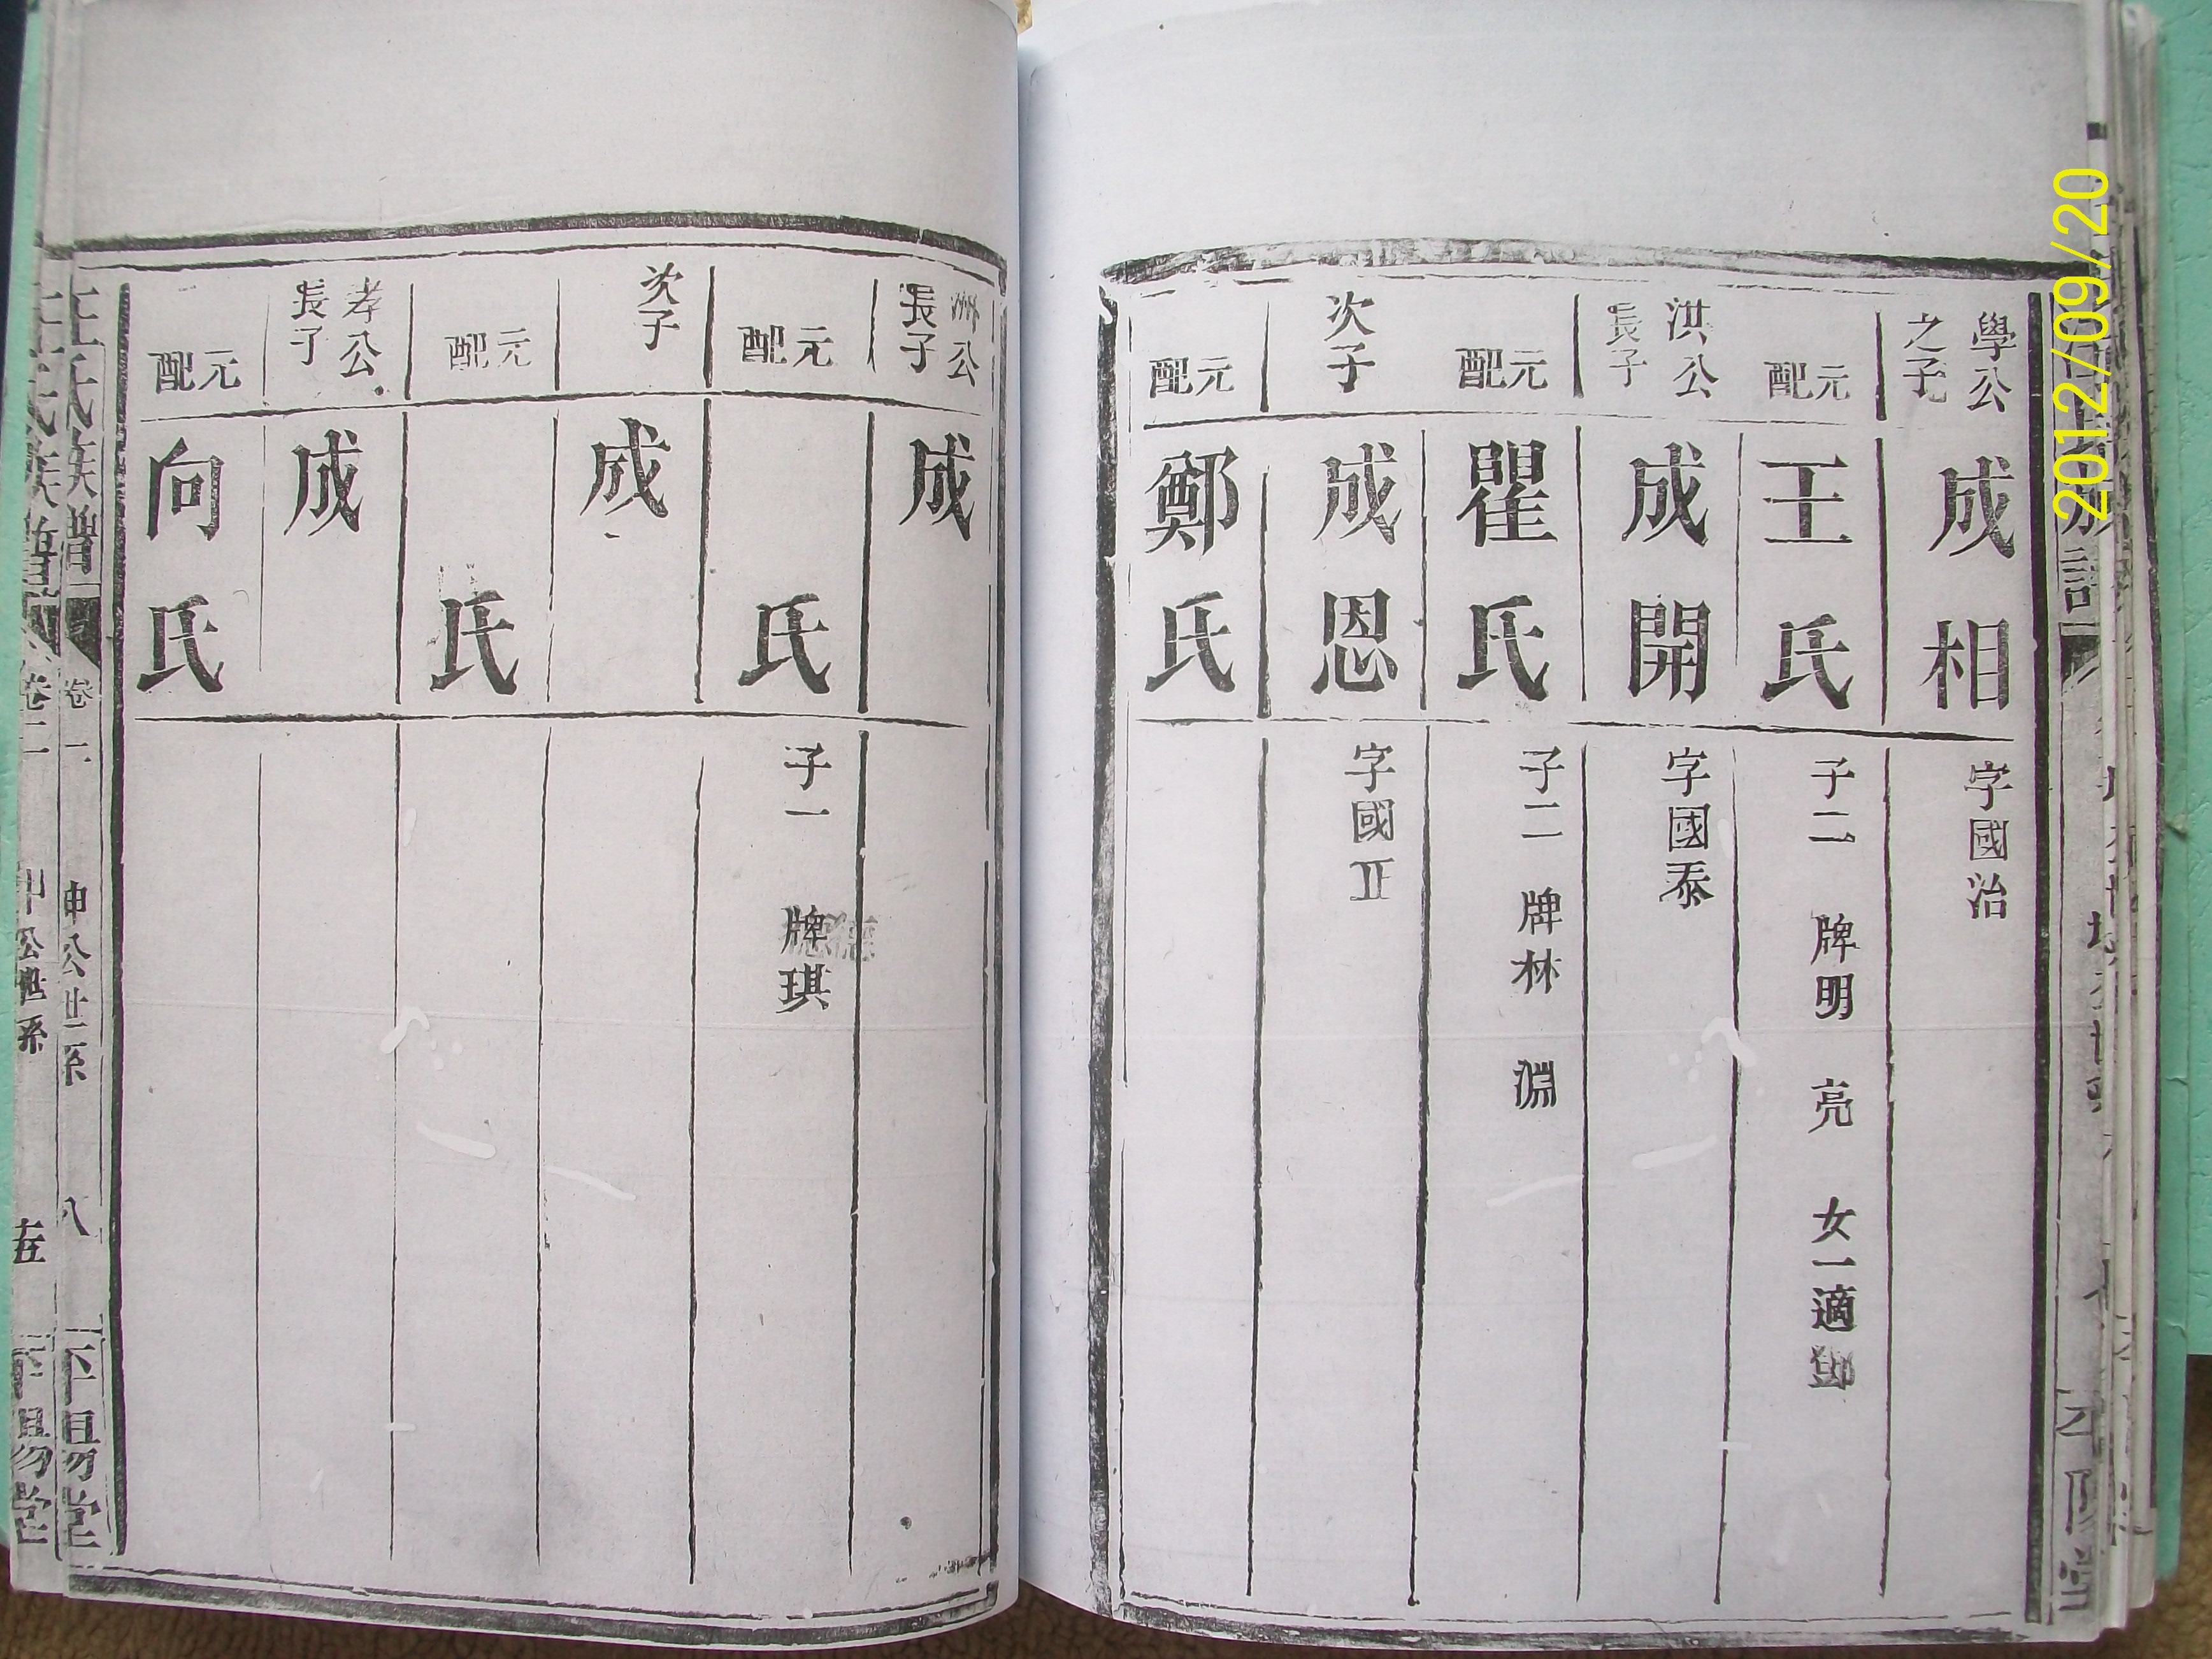 學公
之子
成相
字國治
元配
王氏
子二 牌明 亮 女一適鄧
洪公
長子
成開
字國泰
元配
瞿氏
子二 牌林 淵
次子
成恩
字國正
元配
鄭氏
公
長子
成
元配
氏
子一 牌琪
次子
成
元配
氏
孝公
長子
成
元配
向氏
王氏族譜
卷一
坤公世系
八
平陽堂
2012/09/20